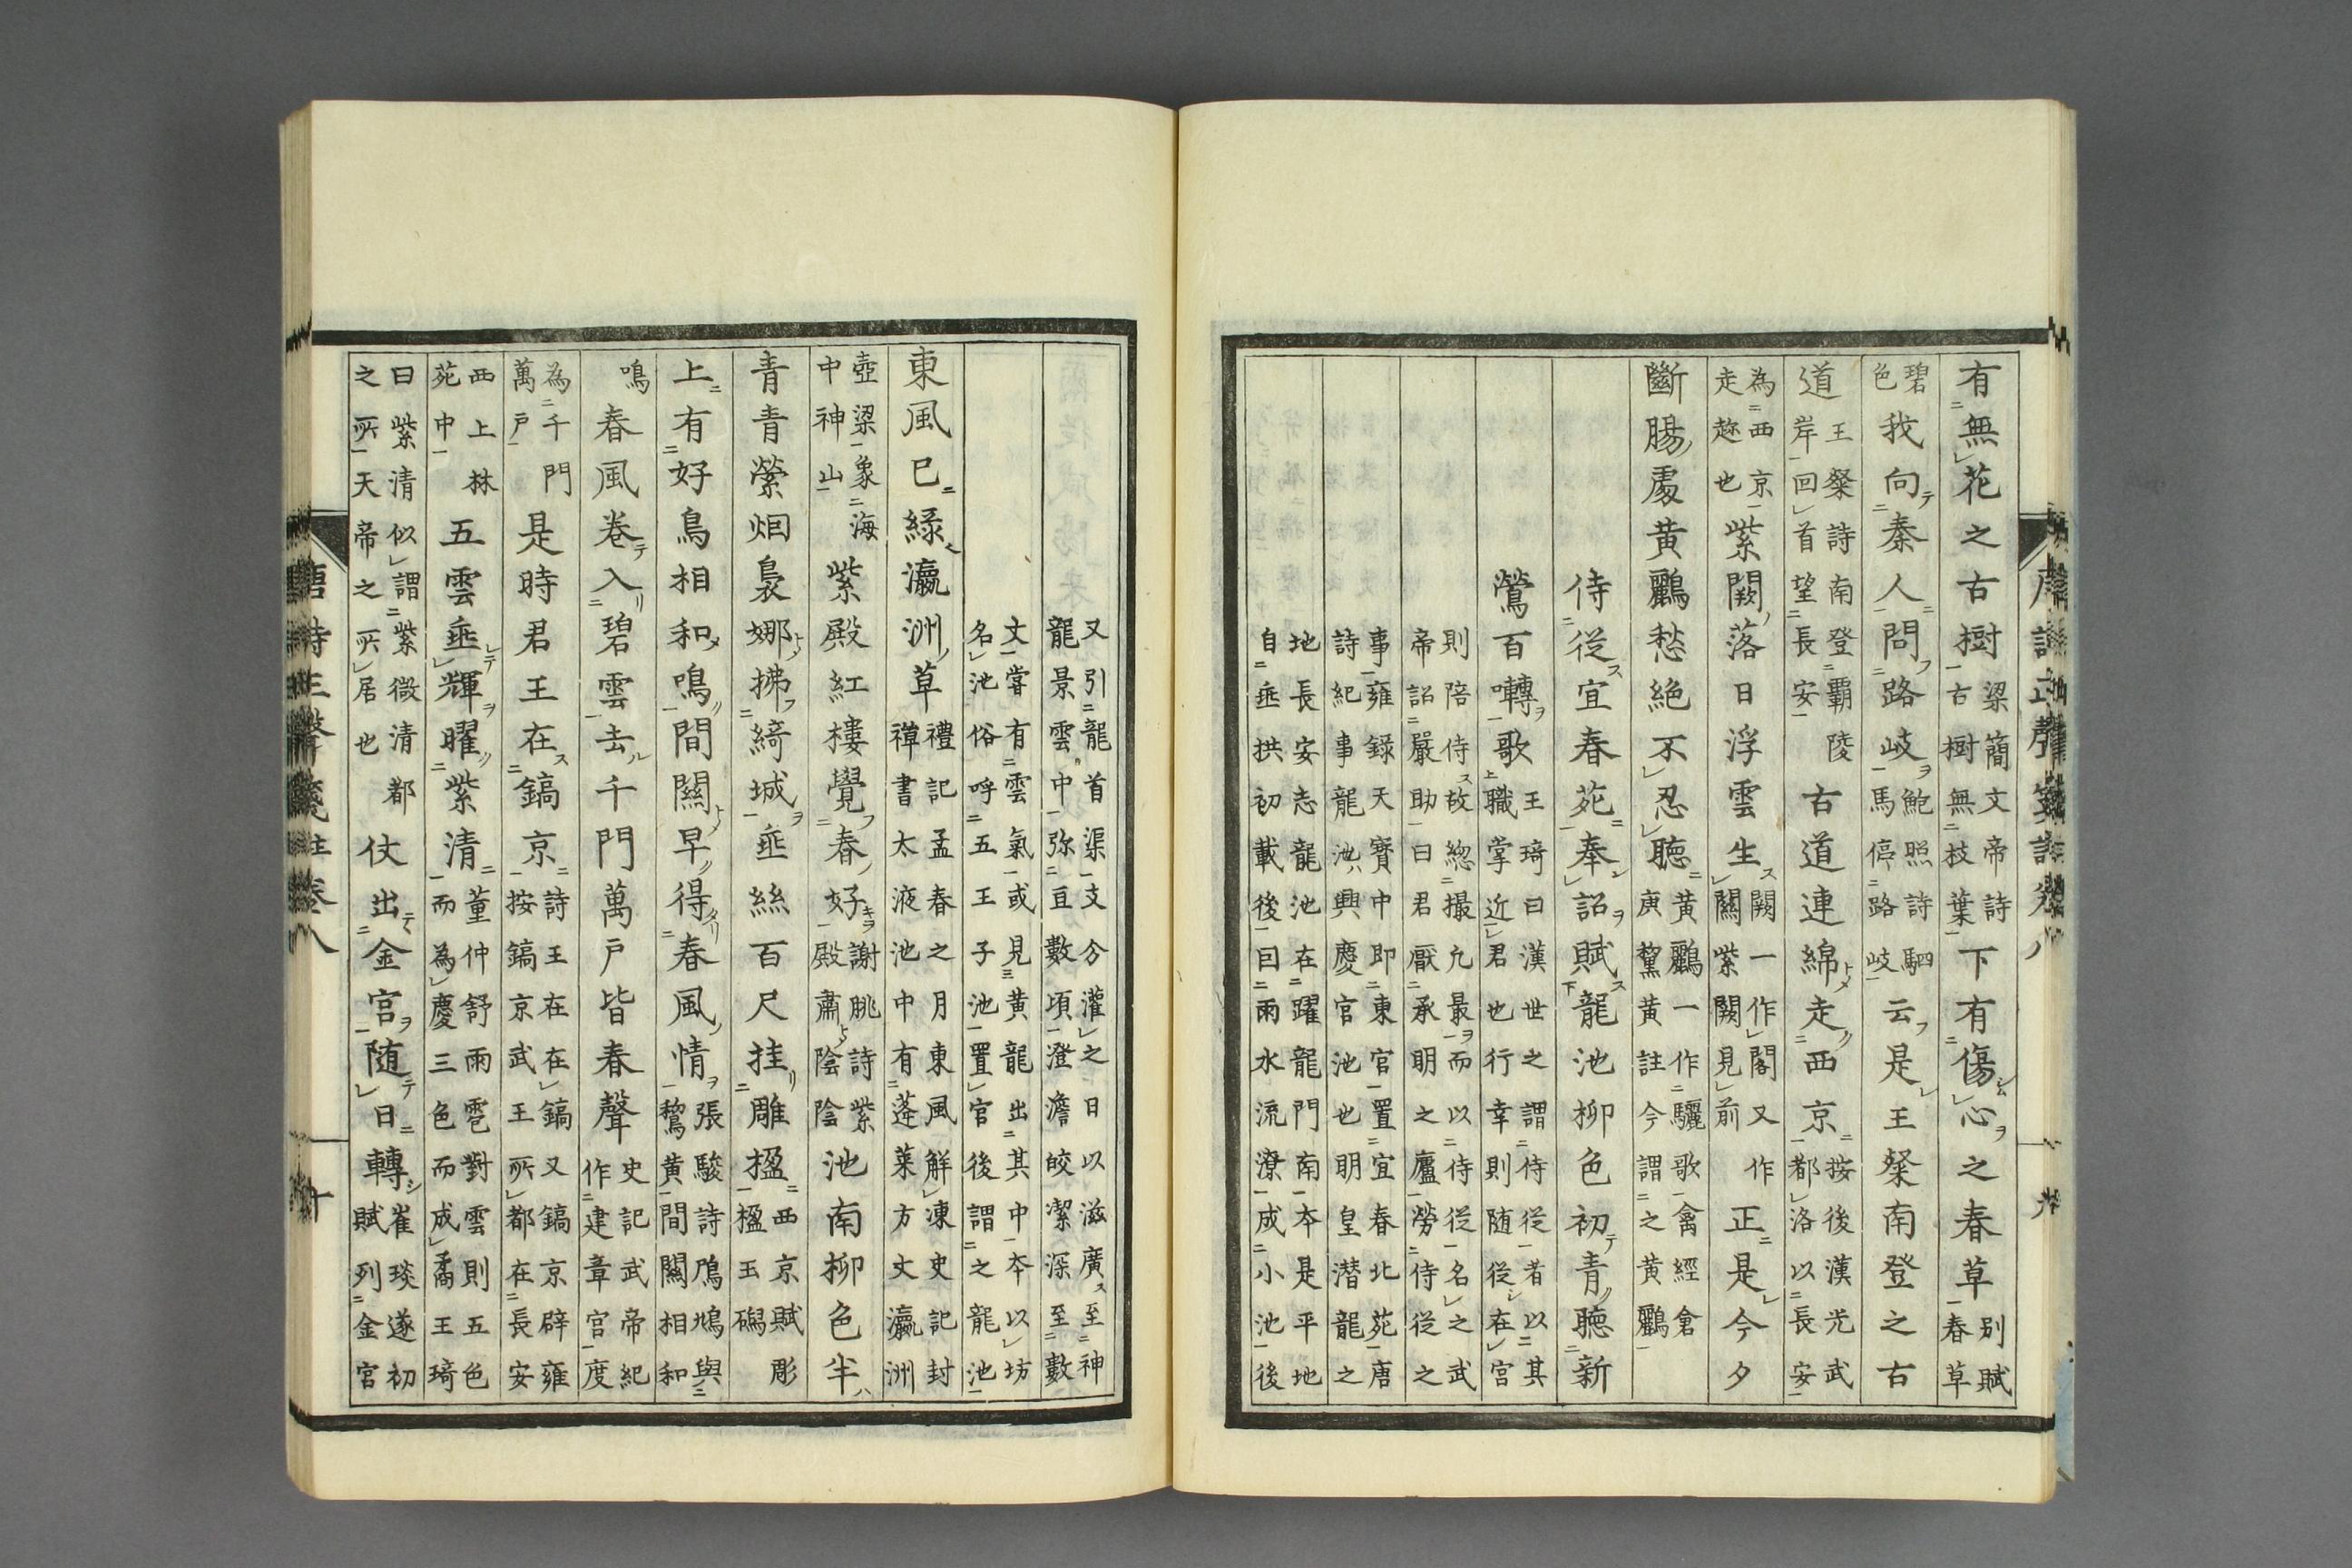 有無花之古樹梁簡文帝詩古樹無枝葉下有傷心之春草別賦春草
碧色我向秦人問路岐鮑照詩駟馬停路岐云是王粲南登之古
道王粲詩南登覇陵岸回首望長安古道連綿走西京按後漢光武都洛以長安
為西京走趂也紫闕落日浮雲生闕一作閣又作關紫闕見前正是今夕
斷腸處黄鸝愁絕不忍聽黄鸝一作驪歌禽經倉庚黧黄註今謂之黄鸝
侍從宜春苑奉詔賦龍池柳色初青聽新
鶯百囀歌王琦曰漢世之謂侍從者以其職掌近君也行幸則随從在宮
則陪侍故緫撮允最而以侍從名之武帝詔嚴助曰君厭承明之廬勞侍從之
事雍錄天寶中即東宮置宜春北苑唐詩紀事龍池興慶官池也明皇潜龍之
地長安志龍池在躍龍門南夲是平地自垂拱初載後因雨水流潦成小池後
又引龍首渠支分灌之日以滋廣至神龍景雲中弥亘數頃澄澹皎潔深至數
丈甞有雲氣或見黄龍出其中夲以坊名池俗呼五王子池置官後謂之龍池
東風已綠瀛洲草禮記孟春之月東風解凍史記封禅書太液池中有蓬萊方丈瀛洲
壺梁象海中神山紫殿紅樓覺春好謝朓詩紫殿肅陰陰池南柳色半
青青縈烟裊娜拂綺城垂絲百尺挂雕楹西京賦彫楹玉磶
上有好鳥相和鳴間關早得春風情張駿詩鳲鳩與鶖黄間關相和
鳴春風卷入碧雲去千門萬戶皆春聲史記武帝紀作建章宮度
為千門萬戶是時君王在鎬京詩王在在鎬又鎬京辟雍按鎬京武王所都在長安
西上林苑中五雲垂輝曜紫清董仲舒雨雹對雲則五色而為慶三色而成矞王琦
曰紫清似謂紫微清都之所天帝之所居也仗出金宮随日轉崔琰遂初賦列金宮